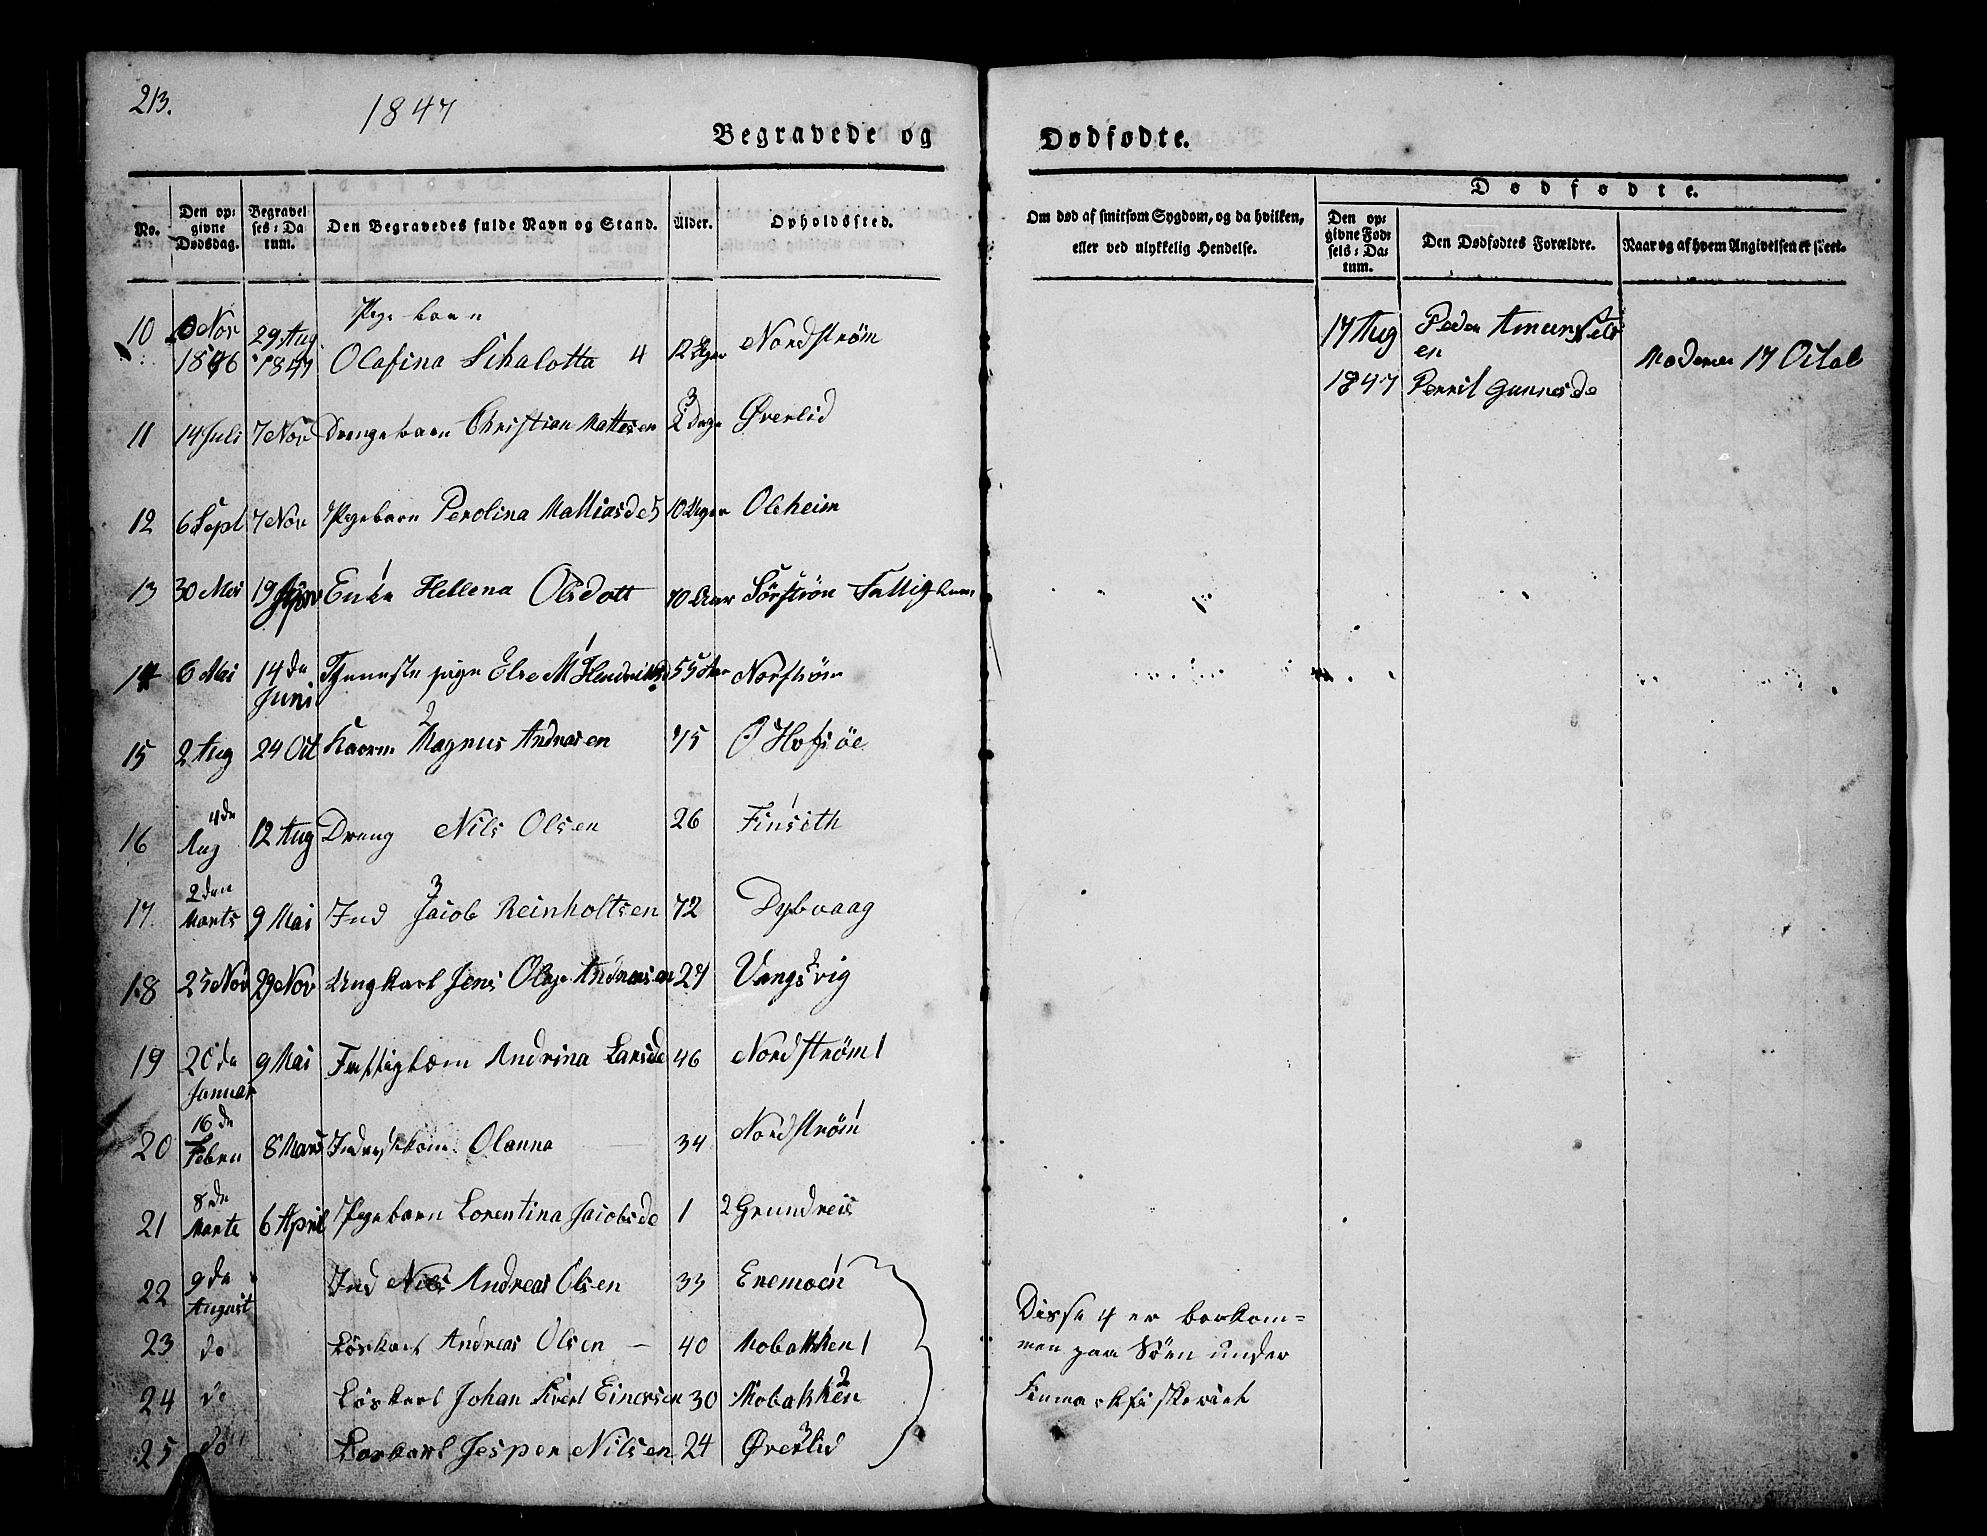 213.
1847
Begravede og
Dødfødte.
No.
Den op:
givne
Dødsdag.
Begravel
ses: Da
tum.
Den Begravedes fulde Navn og Stand.
Alder.
Opholdssted.
Om død af smitsom Sygdom, og da hvilken,
eller ved ulykkelig Hendelse.
Dødfødte.
Den op:
givne Fød:
sels: Da:
tum.
Den Dødfødtes Forældre.
Naar og af hvem Angivelsen er skeet.
10 Nov 1846 29 Aug 1847 Pigebarn Olafina Schalotta 4 12 Uger Nordstrøm
17 Aug 1847 Peder
en
Perril Gunnesde
Moderen 17 Octob
11 14 Juli 7 Nov Drengebarn Christian Mattesen 3 Dage Øverlid
12 6 Sept 7 Nov Pigebarn Perolina Mathiasde 5 10 Uger Oleheim
13 30 Mai 19 Enke Hellena Olsdatt 70 Aar Sørstrøm Fattiglem
14 6 Mai 14de Juni Tjenestepige Else M Hendriksd 55 Aar Norstrøm
15 2 Aug 24 Oct Kaarm Magnus Andreasen 75 Hofsøe
16 4de Aug 12 Aug Dreng Nils Olsen 26 Finseth
17 2den Marts 9 Mai Ind Jacob Reinholtsen 72 Dybvaag
18 25 Nov 29 Nov Ungkarl Jens Olaje Andreasen 27 Vangsvig
19 20de Januar 9 Mai Fattiglem Andrina Larsde 46 Nordstrøm
20 16de Febru 8 Mars Inderstkone Olanna — 34 Nordstrøm
21 8de Marts 6 April Pigebarn Lorentina Jacobsde 1 2 Grundreis
22 9de August Ind Nils Andreas Olsen 33 Enemoen
23 do Løskarl Andreas Olsen — 40 Mobakken 1
24 do Løskarl Johan Sivert Einersen 30 Mobakken 2
25 do Løskarl Jesper Nilsen 24 Øverlid 3
Disse 4 er bortkom=
men paa Søen under
Finmarkfiskeriet